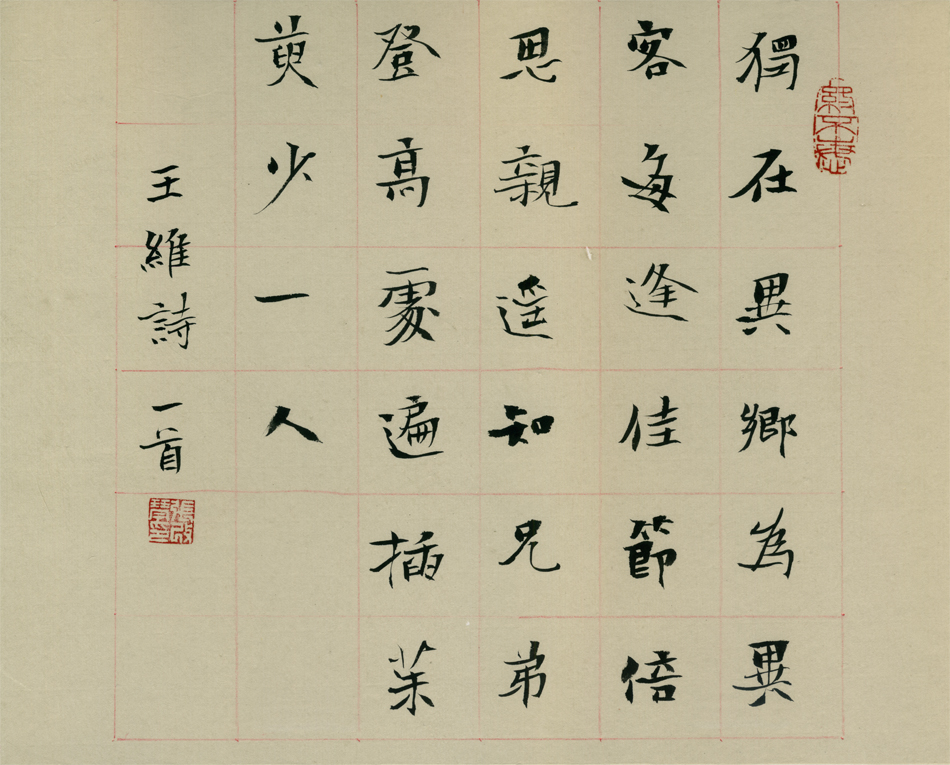 獨在異鄉為異
客每逢佳節倍
思親遥知兄弟
登高處遍插茱
萸少一人
王維詩一首